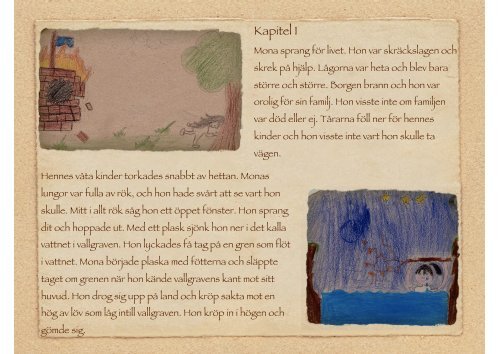 Kapitel 1
Mona sprang för livet. Hon var skräckslagen och
skrek på hjälp. Lågorna var heta och blev bara
större och större. Borgen brann och hon var
orolig för sin familj. Hon visste inte om familjen
var död eller ej. Tårarna föll ner för hennes
kinder och hon visste inte vart hon skulle ta
vägen.
Hennes våta kinder torkades snabbt av hettan. Monas
lungor var fulla av rök, och hon hade svårt att se vart hon
skulle. Mitt i allt rök såg hon ett öppet fönster. Hon sprang
dit och hoppade ut. Med ett plask sjönk hon ner i det kalla
vattnet i vallgraven. Hon lyckades få tag på en gren som flöt
i vattnet. Mona började plaska med fötterna och släppte
taget om grenen när hon kände vallgravens kant mot sitt
huvud. Hon drog sig upp på land och kröp sakta mot en
hög av löv som låg intill vallgraven. Hon kröp in i högen och
gömde sig.